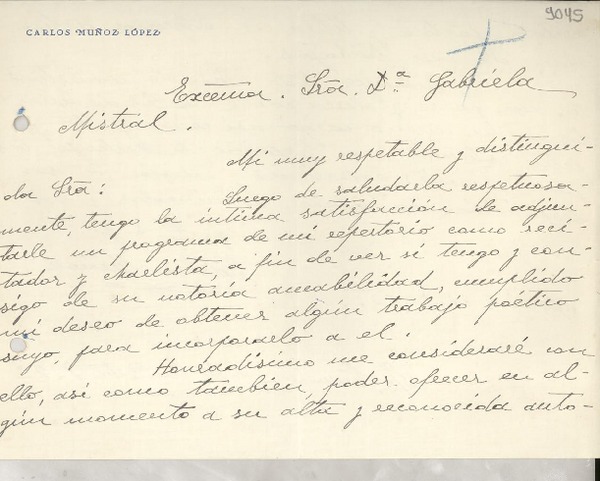 9045
CARLOS MUÑOZ LÓPEZ
Excema. Sra. Dª Gabriela
Mistral.
Mi muy respetable y distingui-
da Sra:
Luego de saludarla respetuosa-
mente, tengo la intima satisfacción de adjun-
tarle un programa de mi repertorio como reci-
tador y charlista, a fin de ver si tengo y con-
sigo de su notoria amabilidad, cumplido
mi deseo de obtener algún trabajo poetico
suyo, para incorporarlo a el.
Honradísimo me consideraré con
ello, asi como tambien, poder ofecer en al-
gún momento a su alta y reconocida auto-